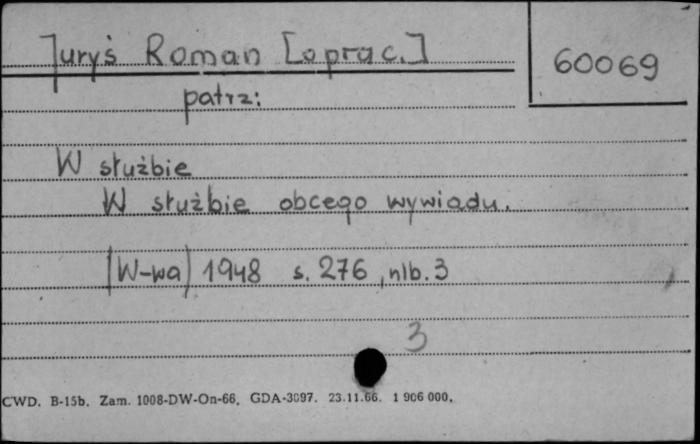 Juryś Roman [oprac.]
60069
patrz:
W służbie
W służbie obcego wywiadu.
[W-wa] 1948 s. 276, nlb. 3
3
CWD. B-15b. Zam. 1008-DW-On-66. GDA-3097. 23.11.66. 1 906 000.